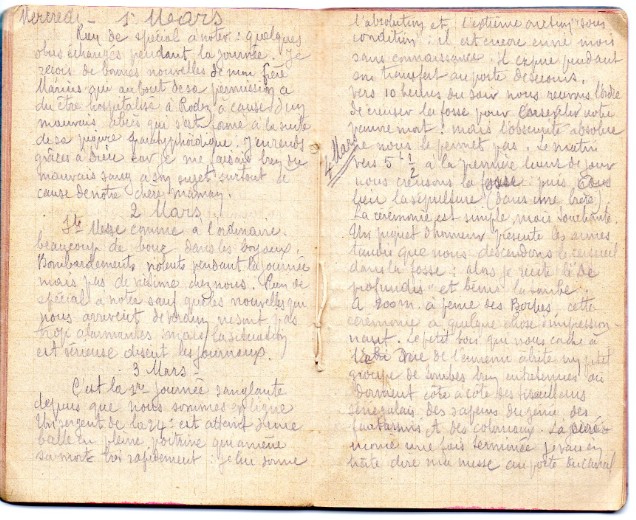 Mercredi - 1er Mars
Rien de spécial à noter : quelques
obus échangés pendant la journée. Je
reçois de bonnes nouvelles de mon frère
Marius qui au bout de sa permission a
du être hospitalisé à Rodez à cause d'un
mauvais abcès qui s'est formé à la suite
de sa piqure paratyphoïdique. J'en rends
grâces à Dieu car je me faisais bien du
mauvais sang à son sujet surtout à
cause de notre chère maman.
2 Mars
Ste Messe comme à l'ordinaire.
beaucoup de boue dans les boyaux.
Bombardements violents pendant la journée
mais pas de victime chez nous. Rien de
spécial à noter sauf que les nouvelles qui
nous arrivent de Verdun ne sont pas
trop alarmantes mais la situation
est sérieuse disent les journaux.
3 Mars
C'est la 1re journée sanglante
depuis que nous sommes en ligne
Un sergent de la 24e est atteint d'une
balle en pleine poitrine qui amène
sa mort très rapidement : je lui donne
l'absolution et l'extrême onction sous
condition : il est encore en vie mais
sans connaissance : il expire pendant
son transfert au poste de secours.
Vers 10 heures du soir nous recevons l'ordre
de creuser la fosse pour
pauvre mort ! mais l'obscurité absolue
ne nous le permet pas. Le matin
4 Mars
vers 5h 1/2 à la première lueur du jour
nous creusons la fosse : puis,
lieu la sépulture (dans une bière).
La cérémonie est simple, mais touchante.
Un piquet d'honneur présente les armes
tandis que nous descendons le cercueil
dans la fosse : alors je récite le de
profundis et bénis la tombe.
A 200m. à peine des Boches, cette
cérémonie a quelque chose d'impression-
nant. Le petit bois que nous cache à
la vue de l'ennemi abrite un petit
groupe de tombes bien entretenues où
dorment côte à côte des tirailleurs
sénégalais des sapeurs du génie des
fantassins, et des coloniaux. La céré-
monie une fois terminée je vais en
hâte dire ma messe au poste du